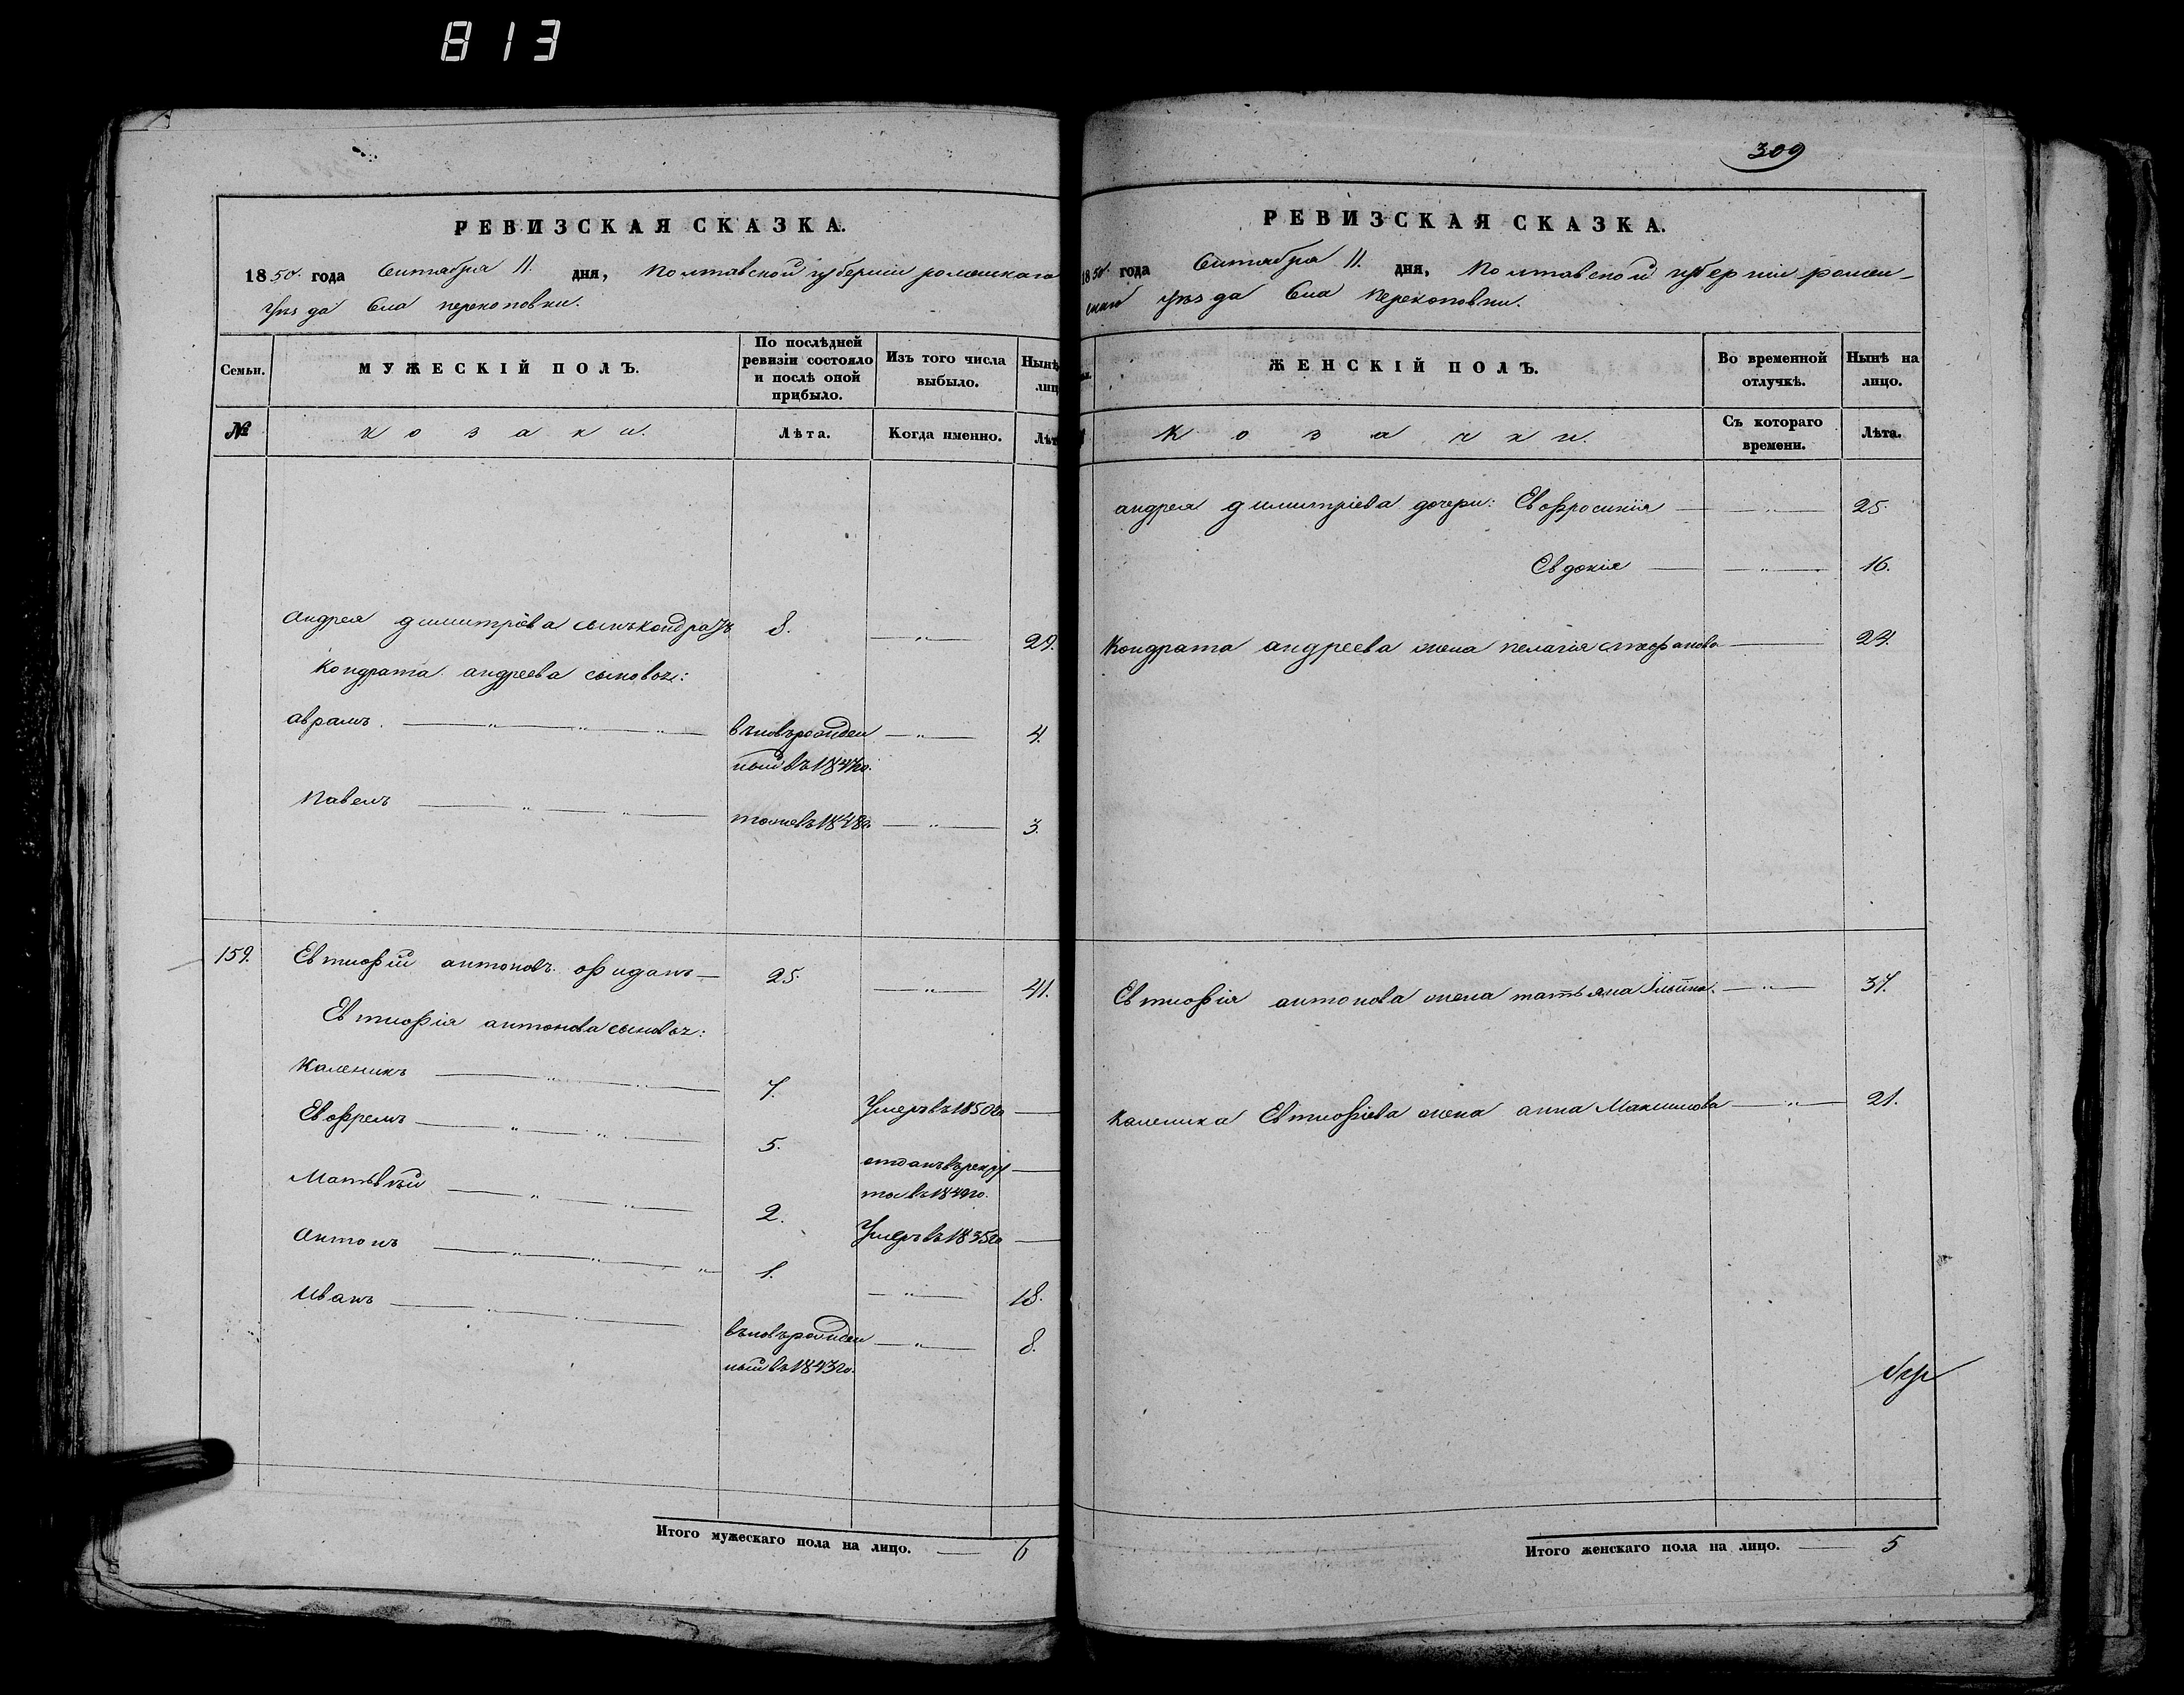 813
РЕВИЗСКАЯ СКАЗКА.
1850 года Сентября 11. дня, Полтавской губернiи роменскаго
уѣзда села перекоповки.
Семьи.
МУЖЕСКIЙ ПОЛЪ.
По послѣдней ревизiи состояло и послѣ оной прибыло.
Изъ того числа выбыло.
Нынѣ
лиц
№
козаки.
Лѣта.
Когда именно.
Лѣт
андрея димитрiева сынъ кондратъ 8. — " — 29.
Кондрата андреева сыновья:
аврамъ. — " — " — " — вновьрожден — " — 4.
ный въ 1847 го.
Павелъ — " — " — тоже въ 1848 го. — " — 3.
159. Евтиофiй антоновъ офиданъ — 25. — " — 41.
Евтиофiя антонова сыновья:
Каленикъ — " — " — 7. Умеръ въ 1850 го —
Евофремъ — " — " — 5. отданъ въ рекру —
ты въ 1849 го.
Матвѣй — " — " — 2. Умеръ въ 1835 го —
антонъ — " — " — " — 1. — " — 18.
Иванъ — " — " — вновьрожден — " — 8.
ный въ 1843 го.
Итого мужескаго пола на лицо. — 6
309
РЕВИЗСКАЯ СКАЗКА.
1850 года Сентября 11. дня, Полтавской губернiи ромен-
скаго уѣзда села Перекоповки.
ЖЕНСКIЙ ПОЛЪ.
Во временной отлучкѣ.
Нынѣ на лицо.
Козачки.
Съ котораго времени.
Лѣта.
андрея димитрiева дочери: Евофросинiя — " — 25.
Евдокiя — " — 16.
Кондрата андреева жена пелагiя стефанова — 29.
Евтиофiя антонова жена татьяна — " — 37.
Каленика Евтиофiева жена анна Максимова — " — 21.
Итого женскаго пола на лицо. — 5